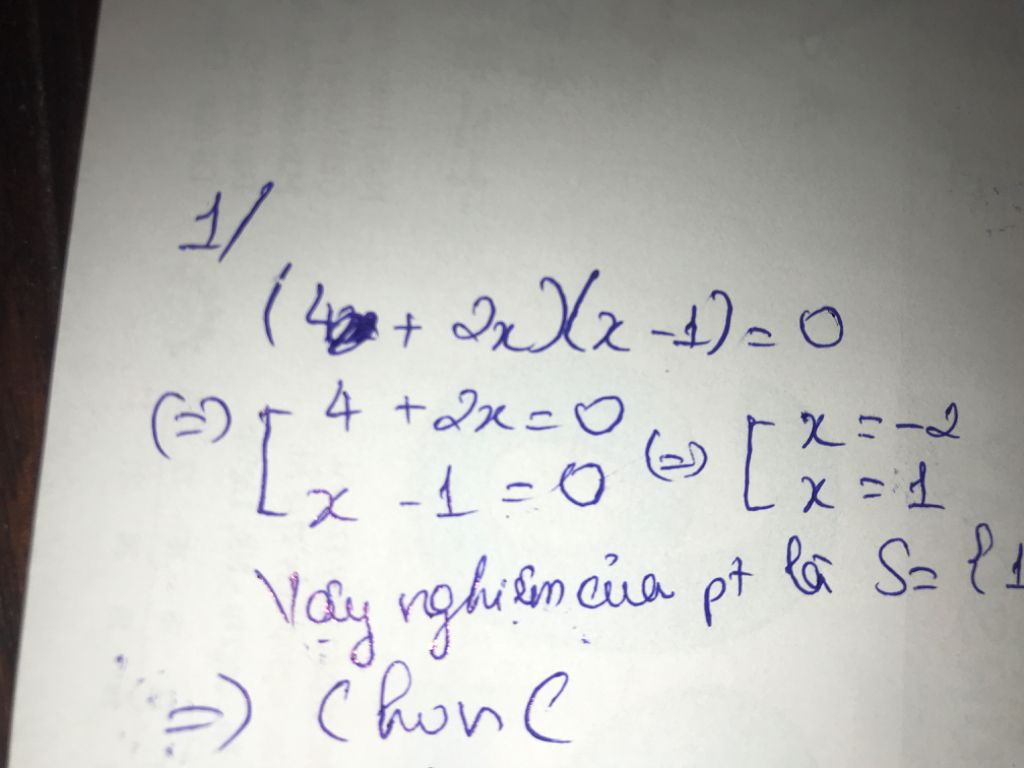 1/
(4 + 2x)(x - 1) = 0
(=) [ 4 + 2x = 0 (=) [ x = -2
x - 1 = 0 x = 1
Vậy nghiệm của pt là S = { 1
=) Chọn C